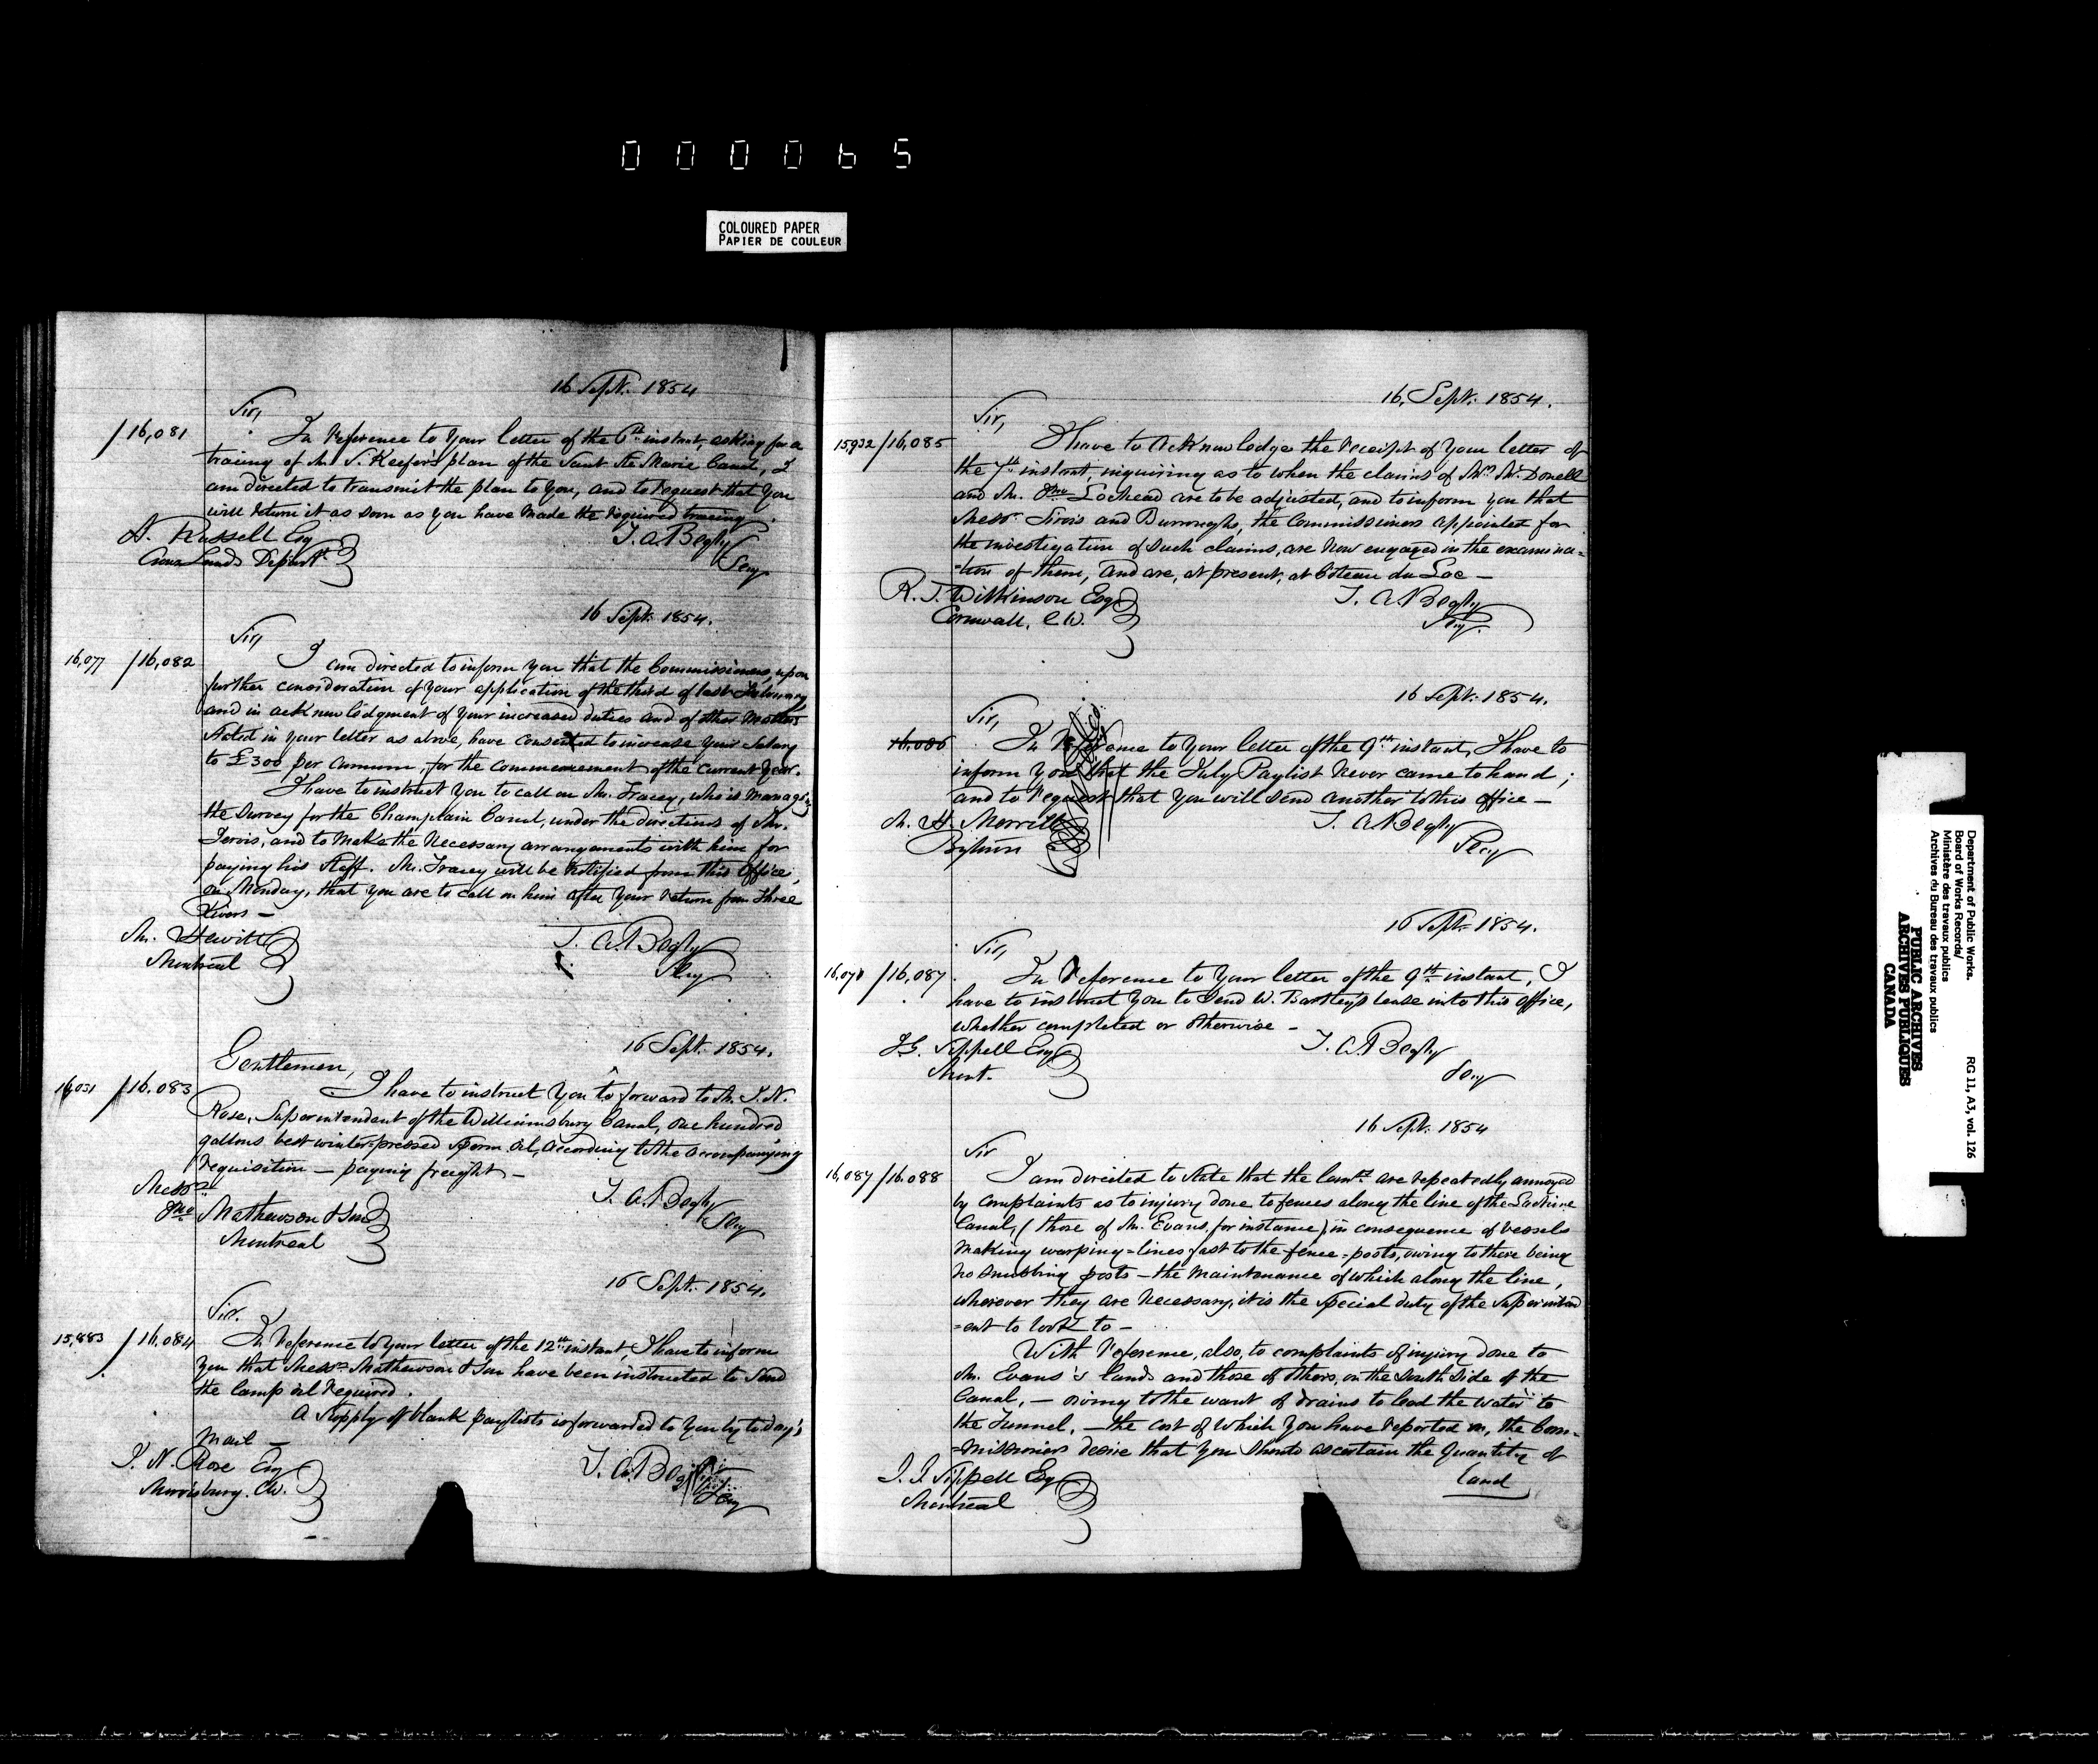 000065
COLOURED PAPER
PAPIER DE COULEUR
16 Sept. 1854
Sir,
/16,081
In reference to your letter of the 6th instant, asking for a
tracing of Mr S. Keefer's plan of the Saut Ste Marie Canal, I
am directed to transmit the plan to you, and to request that you
will return it as soon as you have made the required tracing
A. Russell Esq
Crown Lands Depart.t
T. A. Begly
Secy
16 Sept. 1854.
Sir,
16,077 /16,082
I am directed to inform you that the Commissioners, upon
further consideration of your application of the third of last February
and in acknowledgment of your increased duties and of other matters
stated in your letter as above, have consented to increase your salary
to £300 per annum, for the commencement of the current year.
I have to instruct you to call on Mr. Tracey, who is managing
the survey for the Champlain Canal, under the directions of Mr.
Jervis, and to make the necessary arrangements with him for
paying his staff. Mr. Tracey will be notified from this office,
on Monday, that you are to call on him after your return from Three
Rivers —
Mr. Hewitt
Montreal
T. A. Begly
Secy
16 Sept. 1854.
Gentlemen,
16,031 /16.083
I have to instruct you to forward to Mr. I. N.
Rose, Superintendent of the Williamsburg Canal, one hundred
gallons best winter-pressed sperm oil, according to the accompanying
requisition — paying freight —
Messrs
Jno Mathewson & Son
Montreal
T. A. Begly
Secy
16 Sept. 1854.
Sir.
15,883 /16.084
In reference to your letter of the 12th instant, I have to inform
you that Messrs Mathewson & Son have been instructed to send
the lamp oil required.
A supply of blank paylists is forwarded to you by to day's
mail —
I. N. Rose Esq
Morrisburg. C.W.
T. A. Begly
Secy
16, Sept. 1854.
Sir,
15,932 /16,085
I have to acknowledge the receipt of your letter of
the 7th instant, inquiring as to when the claims of Wm McDonell
and Mr. Jno Lochead are to be adjusted, and to inform you that
Messrs Sirois and Burroughs, the Commissioners appointed for
the investigation of such claims, are now engaged in the examina=
=tion of them, and are, at present, at Coteau du Lac —
R. T. Wilkinson Esq
Cornwall, C.W.
T. A. Begly
Secy.
16 Sept. 1854.
Sir,
16,086
In reference to your letter of the 9th instant, I have to
inform you that the July Paylist never came to hand;
and to request that you will send another to this office —
M. H. Merritt
T. A. Begly
Secy
16 Sept. 1854.
Sir,
16,078 /16,087
In reference to your letter of the 9th instant, I
have to instruct you to send W. Bartley's lease into this office,
whether completed or otherwise —
J. G. Sippell Esq
Mont.
T. A. Begly
Secy
16 Sept. 1854
Sir
16,087 /16.088
I am directed to state that the Comrs are repeatedly annoyed
by complaints as to injury done to fences along the line of the Lachine
Canal, (those of Mr. Evans, for instance) in consequence of vessels
making warping=lines fast to the fence=posts, owing to there being
no snubbing posts — the maintenance of which along the line,
wherever they are necessary, it is the special duty of the superintend
=ent to look to —
With reference, also, to complaints of injury done to
Mr. Evans's lands and those of others, on the south side of the
Canal, — owing to the want of drains to lead the water to
the Tunnel, — the cost of which you have reported on, the Com=
=missioners desire that you should ascertain the quantity of
land
J. G. Sippell Esq
Montreal
Department of Public Works.
Board of Works Records/
Ministère des travaux publics
Archives du Bureau des travaux publics
RG 11, A3, vol. 126
PUBLIC ARCHIVES
ARCHIVES PUBLIQUES
CANADA